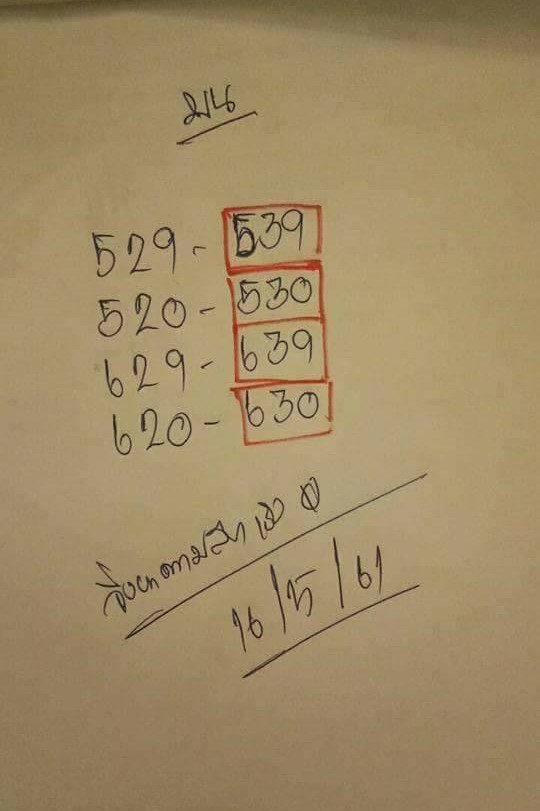 บน
529 - 539
520 - 530
629 - 639
620 - 630
16/5/61